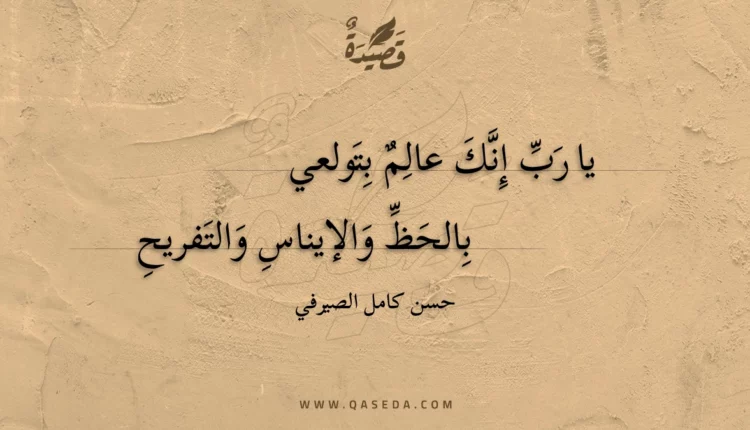 قَصِيدَةٌ
يا رَبِّ إِنَّكَ عالِمٌ بِتَولعي
بِالحَظِّ وَالإيناسِ وَالتَفريحِ
حسن كامل الصيرفي
WWW.QASEDA.COM